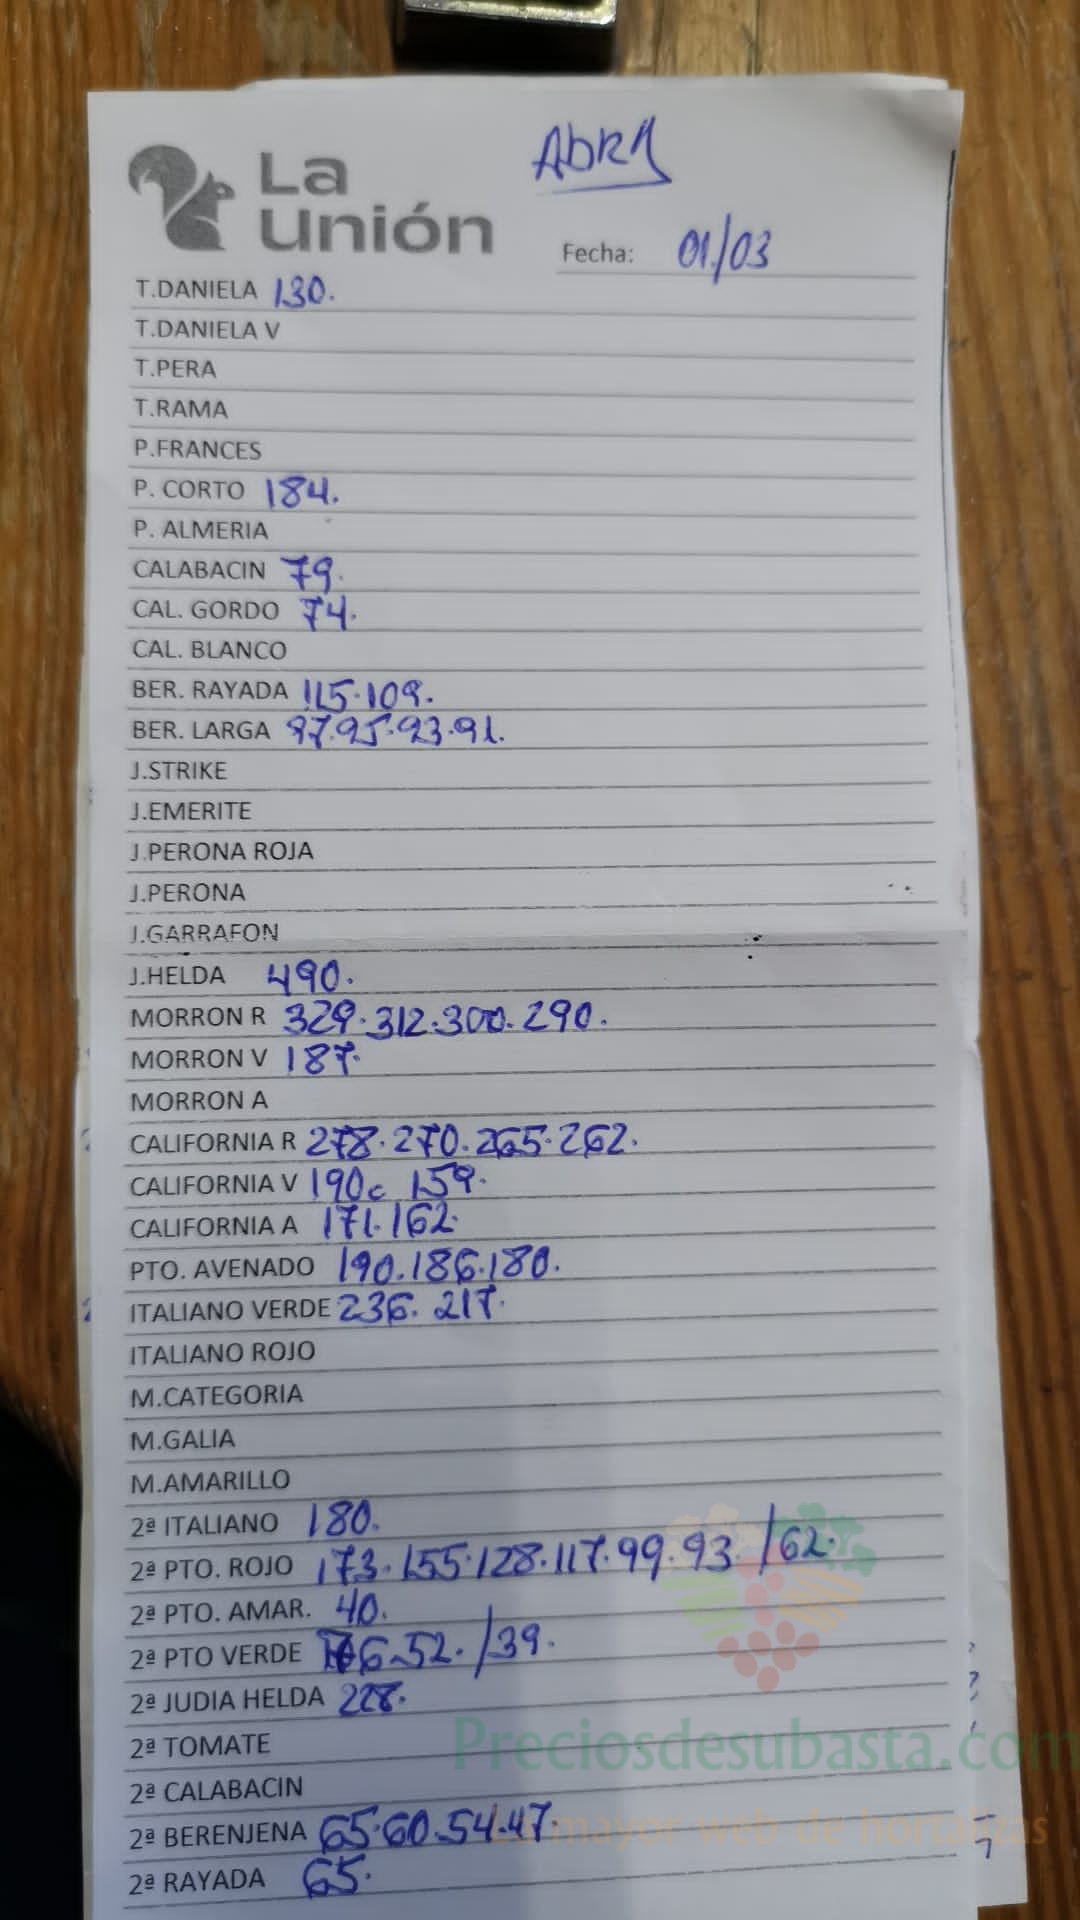 La
Unión
Adra
Fecha: 01/03
T.DANIELA 130.
T.DANIELA V
T.PERA
T.RAMA
P.FRANCES
P. CORTO 184.
P. ALMERIA
CALABACIN 79.
CAL. GORDO 74.
CAL. BLANCO
BER. RAYADA 115.109.
BER. LARGA 97.95.93.91.
J.STRIKE
J.EMERITE
J.PERONA ROJA
J.PERONA
J.GARRAFON
J.HELDA 490.
MORRON R 329.312.300.290.
MORRON V 187.
MORRON A
CALIFORNIA R 278.270.265.262.
CALIFORNIA V 190c 159.
CALIFORNIA A 171.162.
PTO. AVENADO 190.186.180.
ITALIANO VERDE 236. 217.
ITALIANO ROJO
M.CATEGORIA
M.GALIA
M.AMARILLO
2ª ITALIANO 180.
2ª PTO. ROJO 173.155.128.117.99.93. /62.
2ª PTO. AMAR. 40.
2ª PTO VERDE 52. /39.
2ª JUDIA HELDA 228.
2ª TOMATE
Preciosdesubasta.com
2ª CALABACIN
2ª BERENJENA 65.60.54.47.
La mayor web de hortalizas
2ª RAYADA 65.